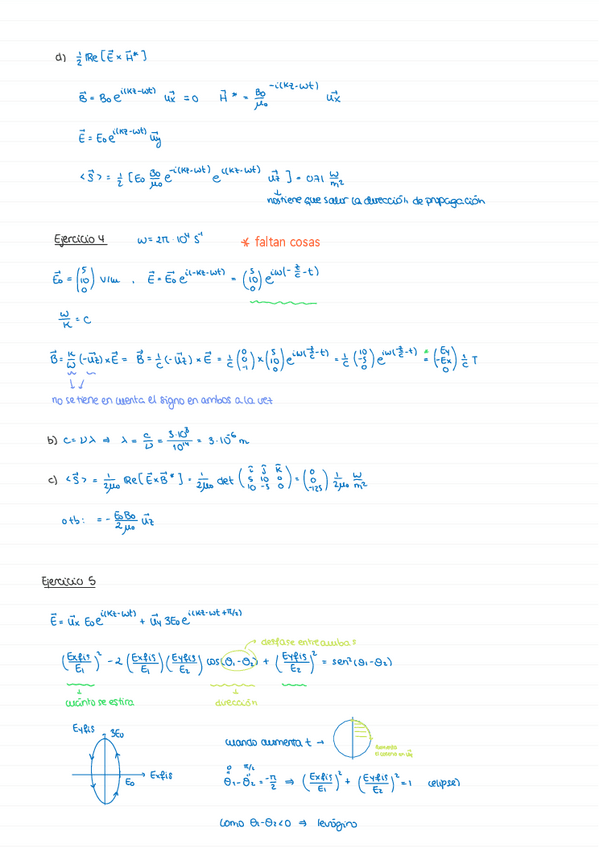 d) ½ Re [E⃗ × H⃗*]
B⃗ = B₀ e^i(kz-ωt) u⃗x = 0 H⃗* = B₀/μ₀ e^-i(kz-ωt) u⃗x
E⃗ = E₀ e^i(kz-ωt) u⃗y
<S⃗> = ½ [E₀ B₀/μ₀ e^-i(kz-ωt) e^i(kz-ωt) u⃗z] = 0,71 W/m²
tiene que salir la dirección de propagación
Ejercicio 4 ω = 2π · 10¹⁴ s⁻¹ * faltan cosas
E⃗₀ = (5 10 0) V/m , E⃗ = E⃗₀ e^i(-kz-ωt) = (5 10 0) e^iω(-z/c-t)
ω/k = c
B⃗ = k/ω (-u⃗z) × E⃗ = B⃗ = 1/c (-u⃗z) × E⃗ = 1/c (0 0 -1) × (5 10 0) e^iω(-z/c-t) = 1/c (10 -5 0) e^iω(-z/c-t) * = (Ey -Ex 0) 1/c T
no se tiene en cuenta el signo en ambos a la vez
b) c = νλ ⇒ λ = c/ν = 3·10⁸/10¹⁴ = 3·10⁻⁶ m
c) <S⃗> = 1/2μ₀ Re[E⃗×B⃗*] = 1/2μ₀ det (i j k 5 10 0 10 -5 0) = (0 0 -125) 1/2μ₀ W/m²
otb: = - E₀B₀/2μ₀ u⃗z
Ejercicio 5
E⃗ = u⃗x E₀ e^i(kz-ωt) + u⃗y 3E₀ e^i(kz-ωt+π/2)
desfase entre ambas
(Exfis/E₁)² - 2 (Exfis/E₁)(Eyfis/E₂) cos(θ₁-θ₂) + (Eyfis/E₂)² = sen²(θ₁-θ₂)
cuánto se estira
dirección
Eyfis
3E₀
Exfis
E₀
cuando aumenta t →
0 π/2
θ₁-θ₂ = -π/2 ⇒ (Exfis/E₁)² + (Eyfis/E₂)² = 1 (elipse)
como θ₁-θ₂<0 ⇒ levógiro